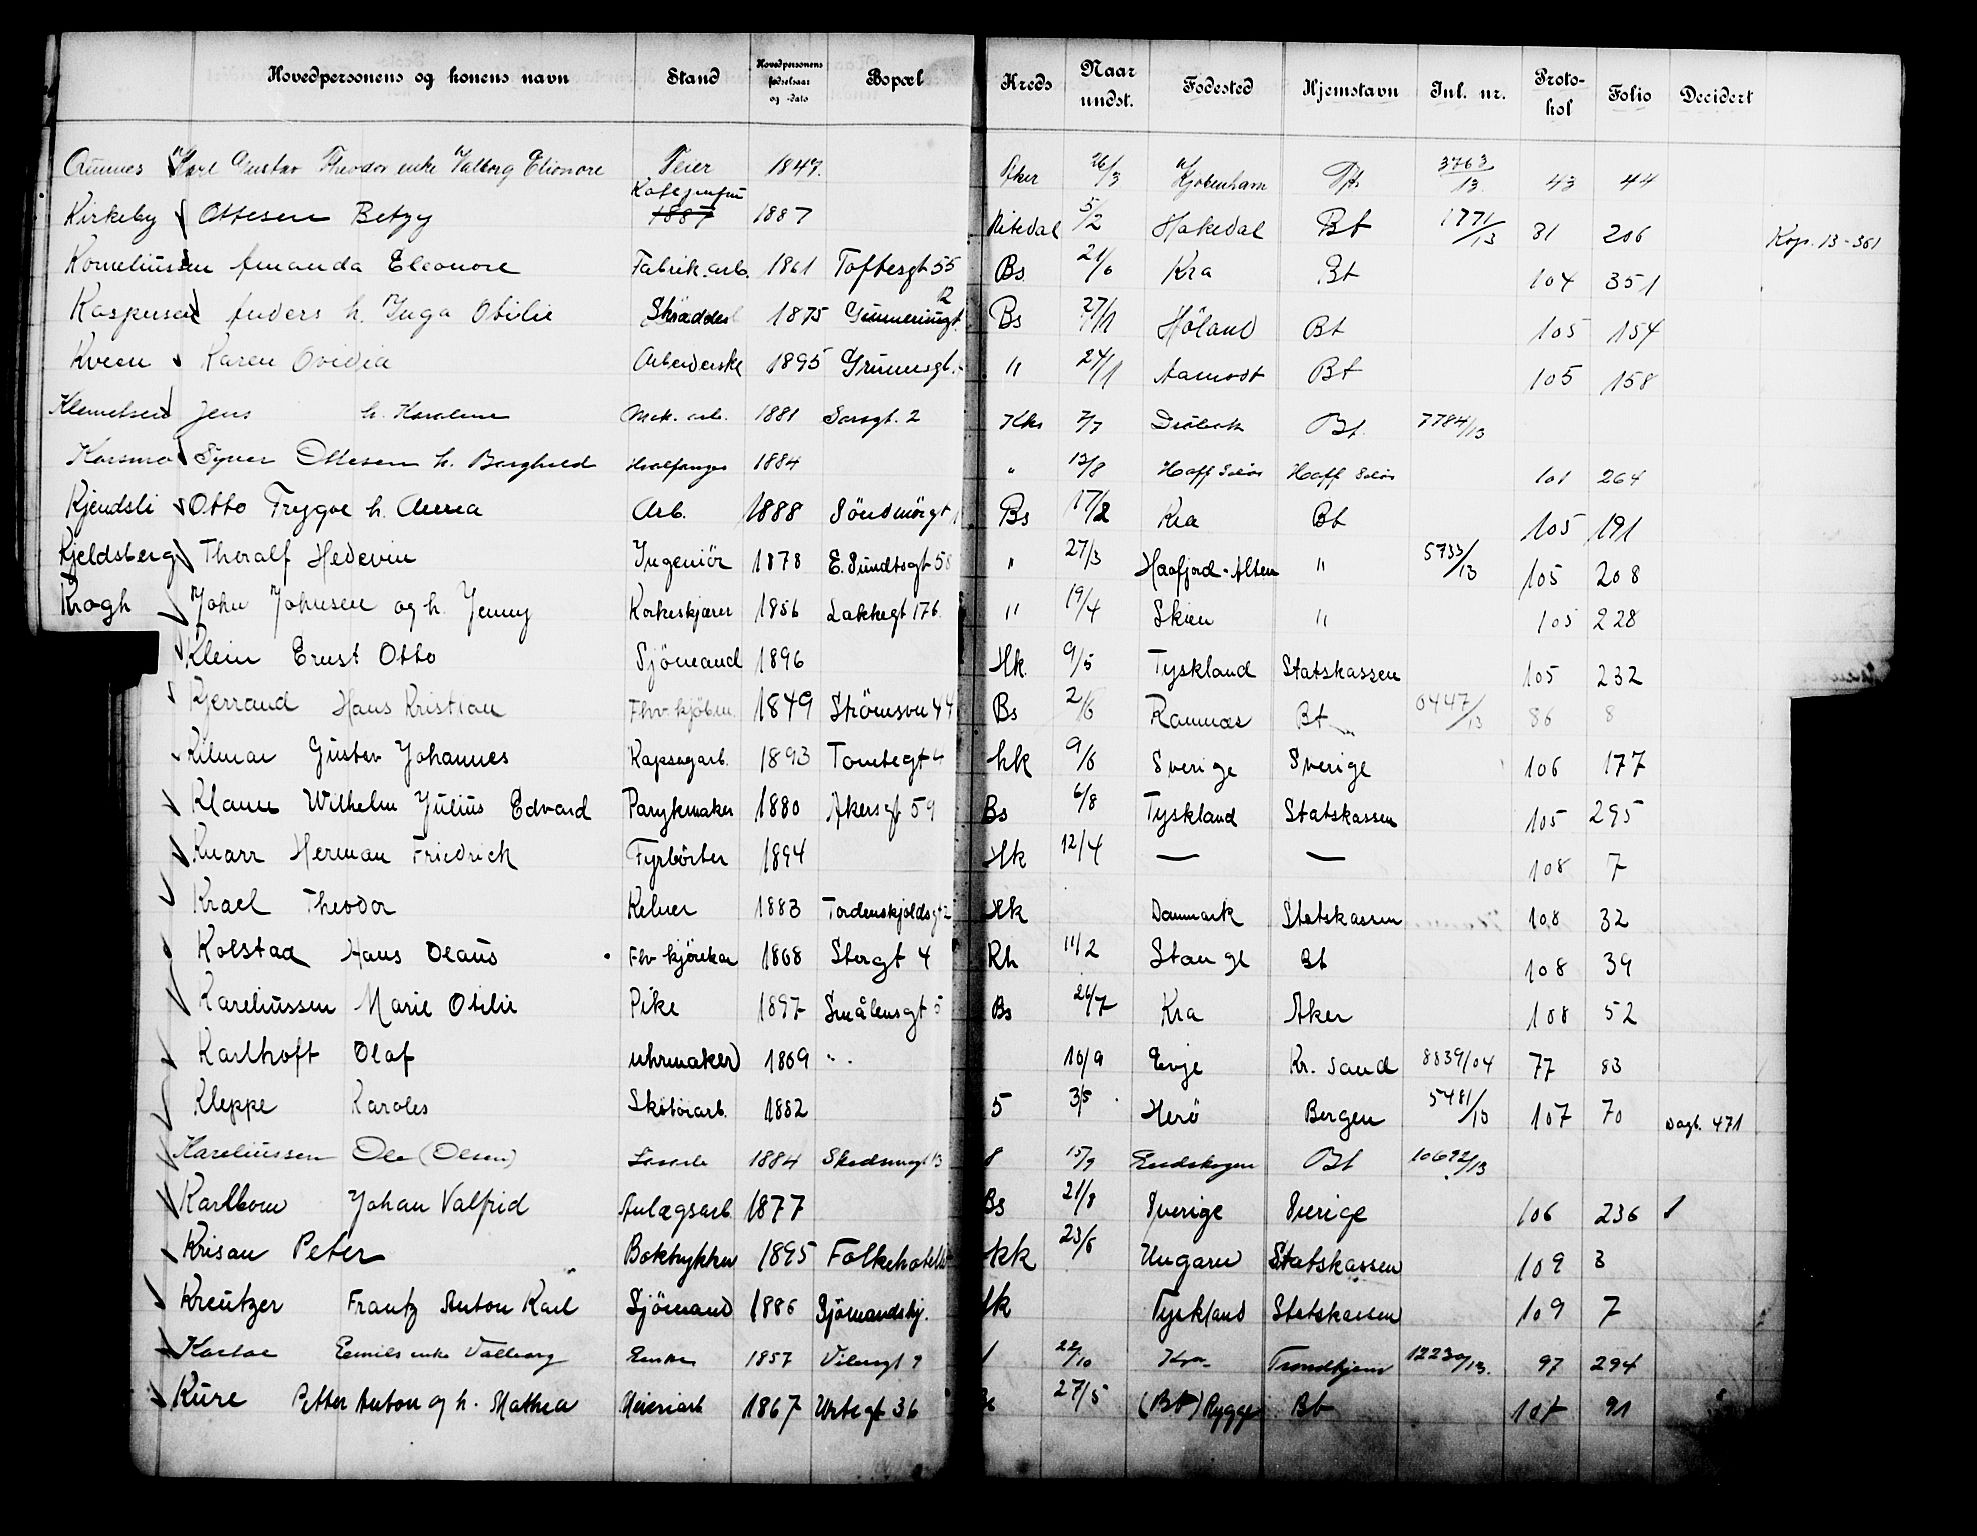 Hovedpersonens og konens navn Stand Hovedpersonens fødselsaar og -dato Bopæl Kreds Naar undst. Fødested Hjemstavn Inl. nr. Protokol Folio Decidert
Karl Gustav Theodor enke Valborg Elionore Feier 1847. Aker 26/3 Kjøbenhavn 3763/13. 43 44
Kirkeby Ottesen Betzy 1887 1887 Nitedal 5/2 Hakedal Bt 1771/13 81 206 Kop. 13-361
Korneliussen Amanda Eleonore Fabrik.arb. 1861 Toftesgt 55 Bs 21/6 Kra Bt 104 351
Kaspersen Anders h. Inga Otilie Skrædder 1875 12 Bs 27/11 Høland Bt 105 154
Kveen Karen Ovidia Arbeiderske 1895 Grünersgt. " 24/1 Aamodt Bt 105 158
Klemetsen Jens h. Karoline Mek. arb. 1881 Sarsgt. 2 Hks 7/7 Drøbak Bt. 7784/13
Korsmo Syver Ottesen h. Borghild Hvalfanger 1884 " 13/8 Hoff Solør Hoff Solør 101 264
Kjendsli Otto Trygve h. Anna Arb. 1888 Söndmörgt 1 Bs 17/2 Kra Bt 105 191
Kjeldsberg Thoralf Hedevin Ingeniör 1878 E. Sundtsgt 58 " 27/3 Haafjord-Alten " 5733/13 105 208
Krogh John Johnsen og h. Jenny Korkeskjærer 1856 Lakkegt 176. " 19/4 Skien " 105 228
Klein Ernst Otto Sjömand 1896 Hk. 9/5 Tyskland Statskassen 105 232
Kjerraud Hans Kristian Fhv. kjöbm. 1849 Strömsvn 44 Bs 2/6 Ramnæs Bt 0447/13 86 8
Kilmar Gustav Johannes Kapsagarb. 1893 Tomtegt 4 Hk 9/6 Sverige Sverige 106 177
Klann Wilhelm Julius Edvard Parykmaker 1880 Akersgt 59 Bs 6/8 Tyskland Statskassen 105 295
Knarr Herman Friedrick Fyrböter 1894 Hk 12/4 — — 108 7
Krael Theodor Kelner 1883 Tordenskjoldsgt 2 Hk Danmark Statskassen 108 32
Kolstad Hans Olaus Fhv kjörekar 1868 Storgt 4 Rh 11/2 Stange Bt 108 39
Kareliussen Marie Otilie Pike 1897 Smålensgt 5 Bs 26/7 Kra Aker 108 52
Karlhoft Olaf uhrmaker 1869 " 10/9 Evje Kr. Sand 8839/04 77 83
Kleppe Karoles Skotöiarb. 1882 5 3/5 Herö Bergen 5481/13 107 70 Dagb. 471
Kareliussen Ole (Olsen) 1884 8 15/9 Eidskogen Bt 10692/13
Karlbom Johan Valfrid Anlægsarb. 1877 Bs 21/8 Sverige Sverige 106 236
Krisan Peter Boktrykker 1895 Folkehotellet Hk 23/6 Ungarn Statskassen 109 3
Kreutzer Frantz Anton Karl Sjömand 1886 Sjömandshj. Hk Tyskland Statskassen 109 7
Emils enke Valborg Enke 1857 1 22/10 Kra Trondhjem 12230/13. 97 294
Kure Petter Anton og h. Mathea Meieriarb 1867 Urtegt 36 Bs 27/5 (Bt) Rygge Bt 107 91